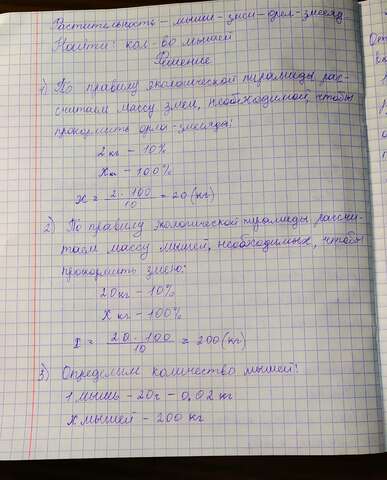 Растительность - мыши - змеи - орёл-змееяд
Найти: кол-во мышей
Решение
1) По правилу экологической пирамиды рас-
считаем массу змей, необходимой, чтобы
прокормить орла-змееяда:
2 кг - 10%
X кг - 100%
X = 2 · 100 / 10 = 20 (кг)
2) По правилу экологической пирамиды рассчи-
таем массу мышей, необходимых, чтобы
прокормить змею:
20 кг - 10%
X кг - 100%
X = 20 · 100 / 10 = 200 (кг)
3) Определим количество мышей:
1 мышь - 20 г - 0,02 кг
X мышей - 200 кг